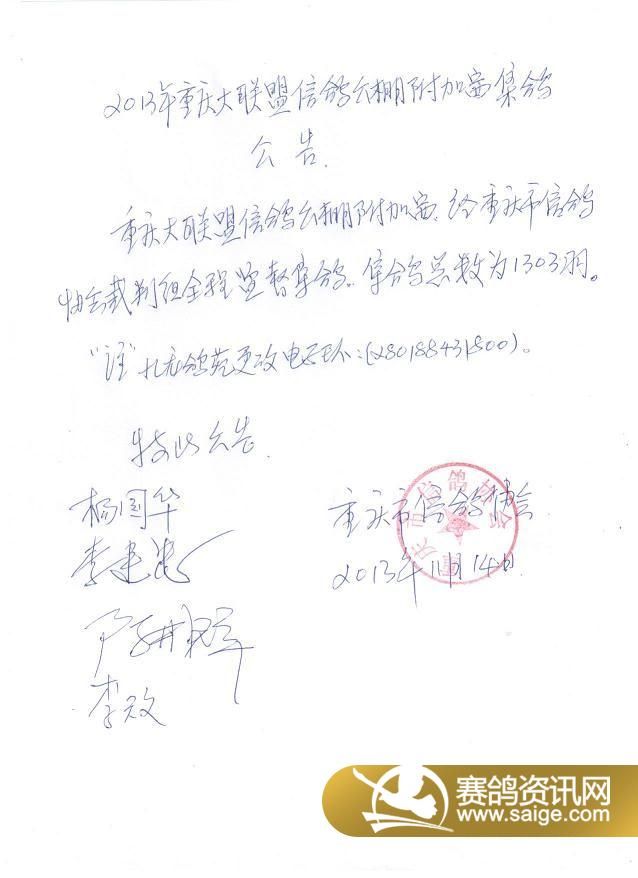 2013年重庆大联盟信鸽公棚附加赛集鸽
公告
重庆大联盟信鸽公棚附加赛,经重庆市信鸽
协会裁判组全程监督集鸽。集鸽总数为1303羽。
更改电子环:(280188431800)。
特此公告
杨国华
重庆市信鸽协会
2013年11月14日
赛鸽资讯网
www.saige.com